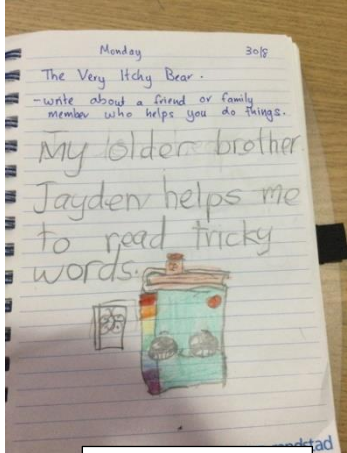 Monday 30/8
The Very Itchy Bear.
-write about a friend or family
member who helps you do things.
My older brother
Jayden helps me
to read tricky
words.